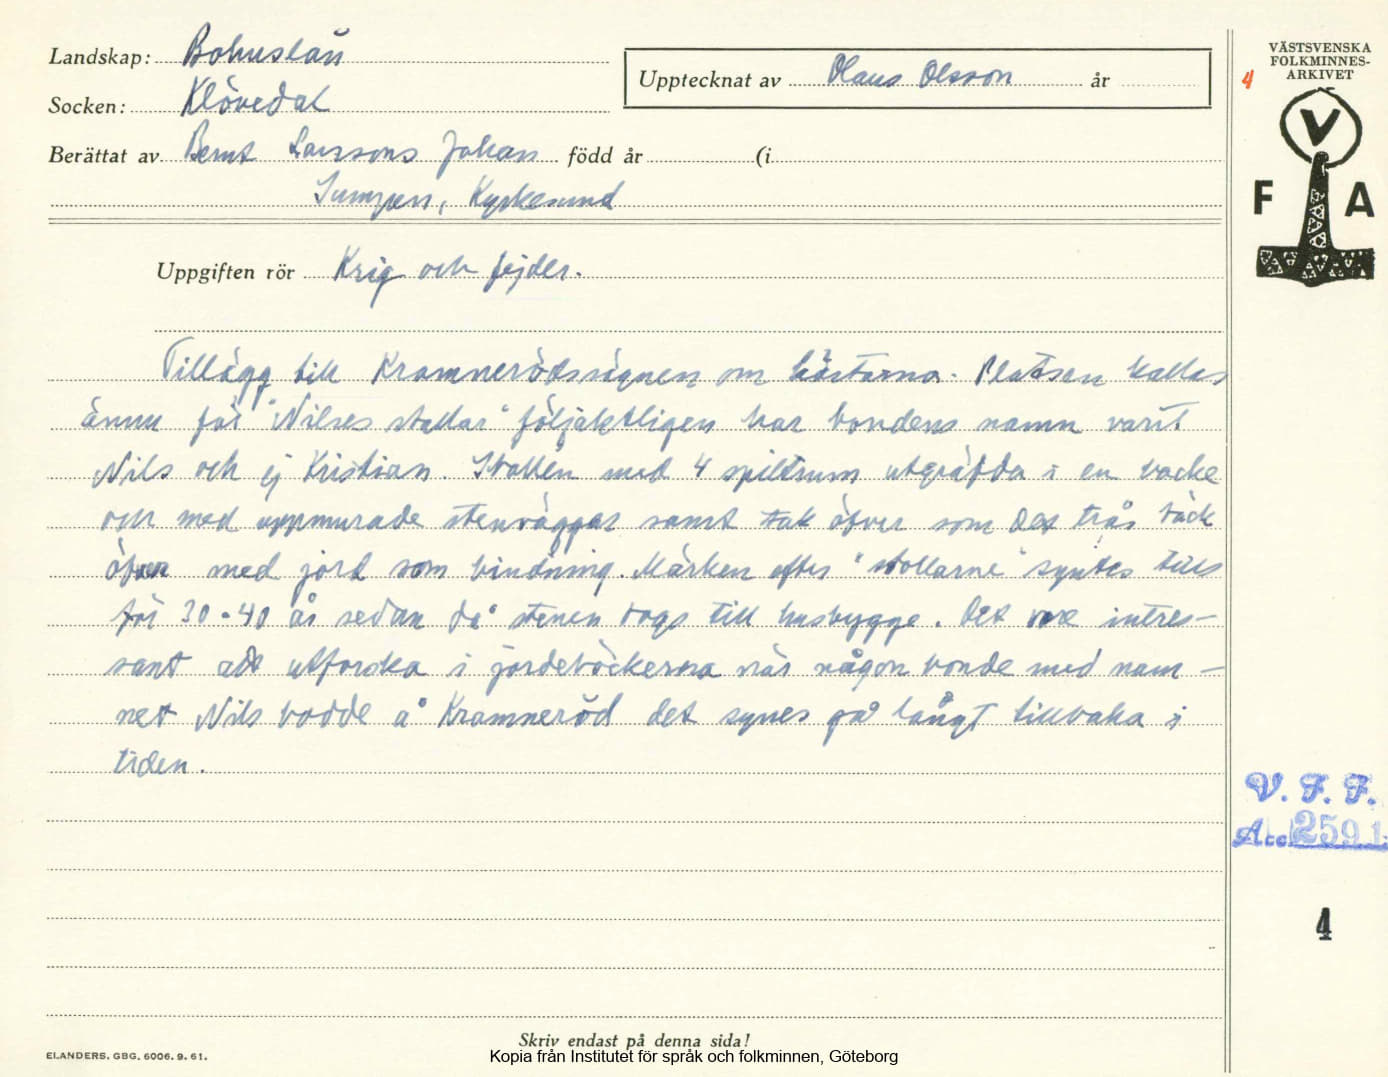 Landskap: Bohuslän
Socken: Klövedal
Upptecknat av Olaus Olsson år
Berättat av Bernt Larssons Johan född år (i
Kyrkesund
Uppgiften rör Krig och fejder.
Tillägg till Kramnerödssägnen om hästarna. Platsen kallas
ännu för "Nilses stallar" följaktligen har bondens namn varit
Nils och ej Kristian. Stallen med 4 spiltrum utgräfda i en backe
och med uppmurade stenväggar samt tak öfver som det trås täck
öfver med jord som bindning. Märken efter "stallarne" syntes tills
för 30-40 år sedan då stenen togs till husbygge. Det vore intres-
sant att utforska i jordeböckerna när någon bonde med nam-
net Nils bodde å Kramneröd det synes gå långt tillbaka i
tiden.
VÄSTSVENSKA
FOLKMINNES-
ARKIVET
4
V
F A
V. F. F.
Acc. 2591
4
Skriv endast på denna sida!
ELANDERS. GBG. 6006. 9. 61.
Kopia från Institutet för språk och folkminnen, Göteborg